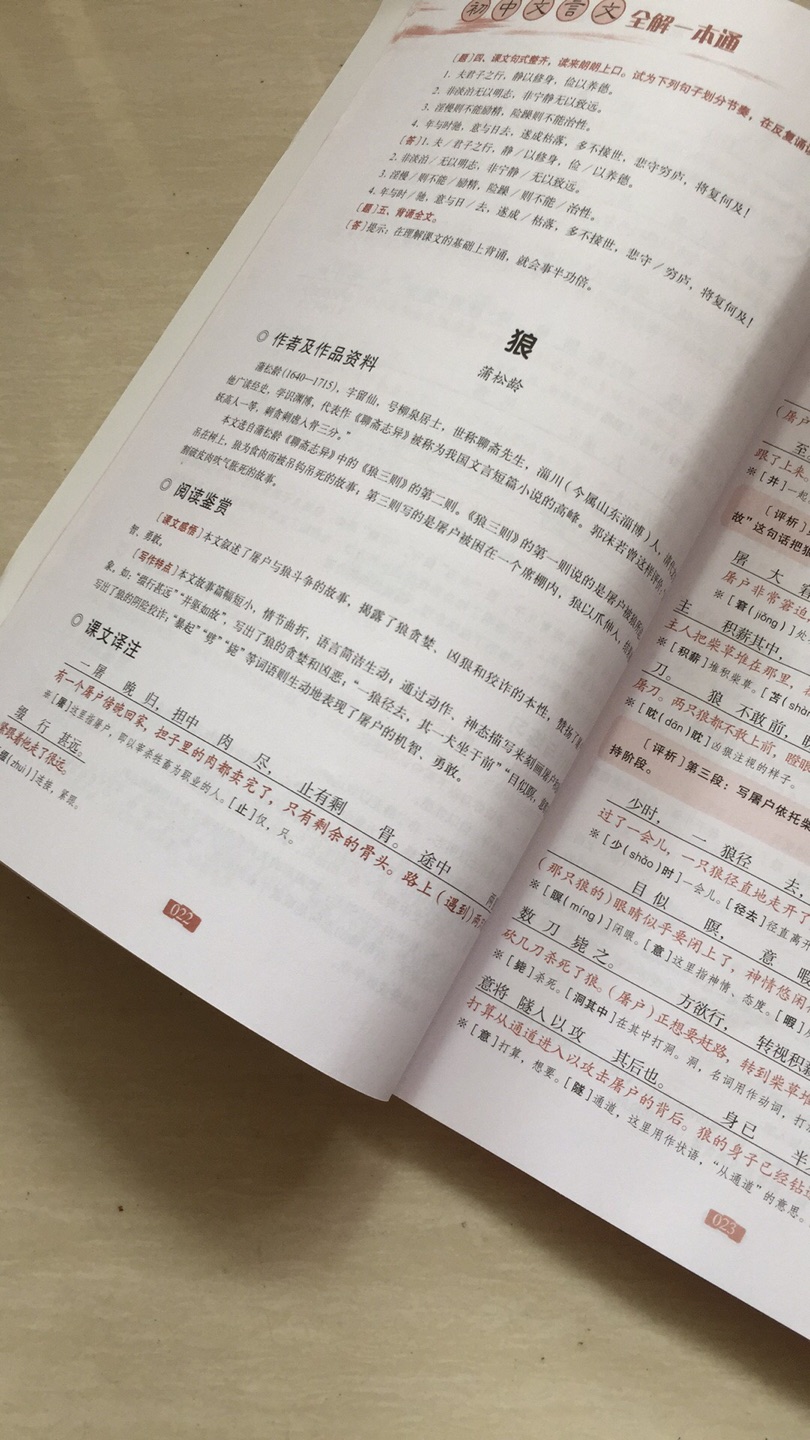 初中文言文全解一本通
〔题〕四、课文句式整齐，读来朗朗上口。试为下列句子划分节奏，在反复诵读
1. 夫君子之行，静以修身，俭以养德。
2. 非淡泊无以明志，非宁静无以致远。
3. 淫慢则不能励精，险躁则不能治性。
4. 年与时驰，意与日去，遂成枯落，多不接世，悲守穷庐，将复何及！
〔答〕1. 夫／君子之行，静／以修身，俭／以养德。
2. 非淡泊／无以明志，非宁静／无以致远。
3. 淫慢／则不能／励精，险躁／则不能／治性。
4. 年与时／驰，意与日／去，遂成／枯落，多不接世，悲守／穷庐，将复何及！
〔题〕五、背诵全文。
〔答〕提示：在理解课文的基础上背诵，就会事半功倍。
狼
蒲松龄
◎ 作者及作品资料
蒲松龄(1640—1715)，字留仙，号柳泉居士，世称聊斋先生，淄川(今属山东淄博)人，清代
他广读经史，学识渊博，代表作《聊斋志异》被称为我国文言短篇小说的高峰。郭沫若曾这样评价：
妖高人一等，刺贪刺虐入骨三分。”
本文选自蒲松龄《聊斋志异》中的《狼三则》的第二则。《狼三则》的第一则说的是屠户被狼所
吊在树上，狼为食肉而被吊钩吊死的故事；第三则写的是屠户被困在一个席棚内，狼以爪伸入，
割破皮肉吹气胀死的故事。
◎ 阅读鉴赏
〔课文感悟〕本文叙述了屠户与狼斗争的故事，揭露了狼贪婪、凶狠和狡诈的本性，赞扬了屠
智、勇敢。
〔写作特点〕本文故事篇幅短小，情节曲折，语言简洁生动；通过动作、神态描写来刻画屠户
象，如：“缀行甚远”“并驱如故”，写出了狼的贪婪和凶恶；“一狼径去，其一犬坐于前”“目似瞑，意
写出了狼的阴险狡诈；“暴起”“劈”“毙”等词语则生动地表现了屠户的机智、勇敢。
◎ 课文译注
一屠 晚 归，担中 肉 尽， 止有剩 骨。 途中 两
有一个屠户傍晚回家，担子里的肉都卖完了，只有剩余的骨头。路上(遇到)两
※[屠]这里指屠户，即以宰杀牲畜为职业的人。[止]仅，只。
缀 行 甚远。
紧跟着他走了很远。
缀(zhuì)]连接，紧跟。
022
(屠户
至
跟了上来。
※[并]一起
〔评析〕
故”这句话把狼
屠 大 窘
屠户非常窘迫，
※[窘(jiǒng)]处
主 积薪其中，
主人把柴草堆在那里，
※[积薪]堆积柴草。[苫(shàn
刀。 狼 不敢前，
屠刀。两只狼都不敢上前，瞪眼
※[眈(dān)眈]凶狠注视的样子。
〔评析〕第三段：写屠户依托柴
持阶段。
少时， 一 狼径 去，
过了一会儿，一只狼径直地走开了
※[少(shǎo)时]一会儿。[径去]径直离开
目似 瞑， 意 暇
(那只狼的)眼睛似乎要闭上了，神情悠闲
※[瞑(míng)]闭眼。[意]这里指神情、态度。[暇]
数 刀 毙 之。 方欲行， 转视积薪
砍几刀杀死了狼。(屠户)正想要赶路，转到柴草堆
※[毙]杀死。[洞其中]在其中打洞。洞，名词用作动词，打
意将 隧入以攻 其后也。 身已 半
打算从通道进入以攻击屠户的背后。狼的身子已经钻
※[意]打算，想要。[隧]通道，这里用作状语，“从通道”的意思。
023